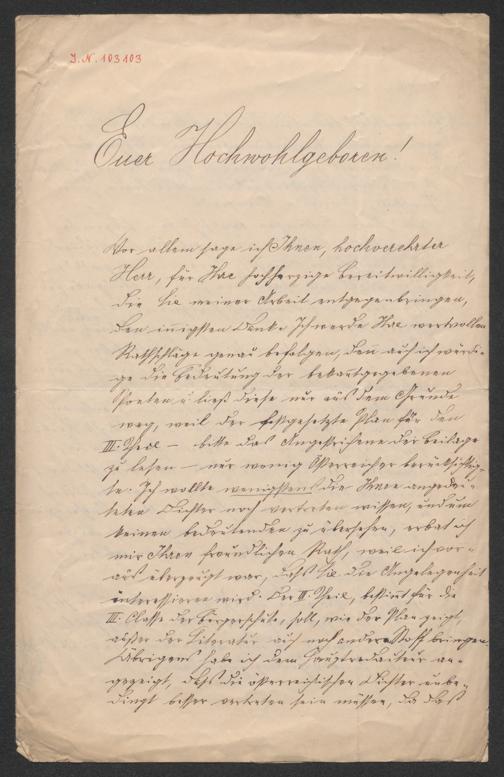 J.N. 103103
Euer Hochwohlgeboren!
Vor allem sage ich Ihnen, hochverehrter
Herr, für Ihre hochherzige Bereitwilligkeit,
die Sie meiner Arbeit entgegenbringen,
den innigsten Dank. Ich werde Ihre wertvollen
Rathschläge genau befolgen, denn auch ich würdi-
ge die Bedeutung der bekanntgegebenen
Poeten u. ließ diese nur aus dem Grunde
weg, weil der festgesetzte Plan für den
III. Theil — bitte das Angestrichene der Beilage
zu lesen — nur wenig Österreicher berücksichtig-
te. Ich wollte wenigstens die Ihnen angedeu-
teten Dichter noch vertreten wissen, und um
keinen bedeutenden zu übersehen, erbat ich
mir Ihren freundlichen Rath, weil ich vor-
aus überzeugt war, dass Sie die Angelegenheit
interessieren wird. Der II. Theil, bestimmt für die
III. Classe der Bürgerschule, soll, wie der Plan zeigt,
außer der Literatur auch noch anderen Stoff bringen.
Übrigens habe ich dem Hauptredacteur an-
gezeigt, dass die österreichischen Dichter unbe-
dingt besser vertreten sein müssen, da das